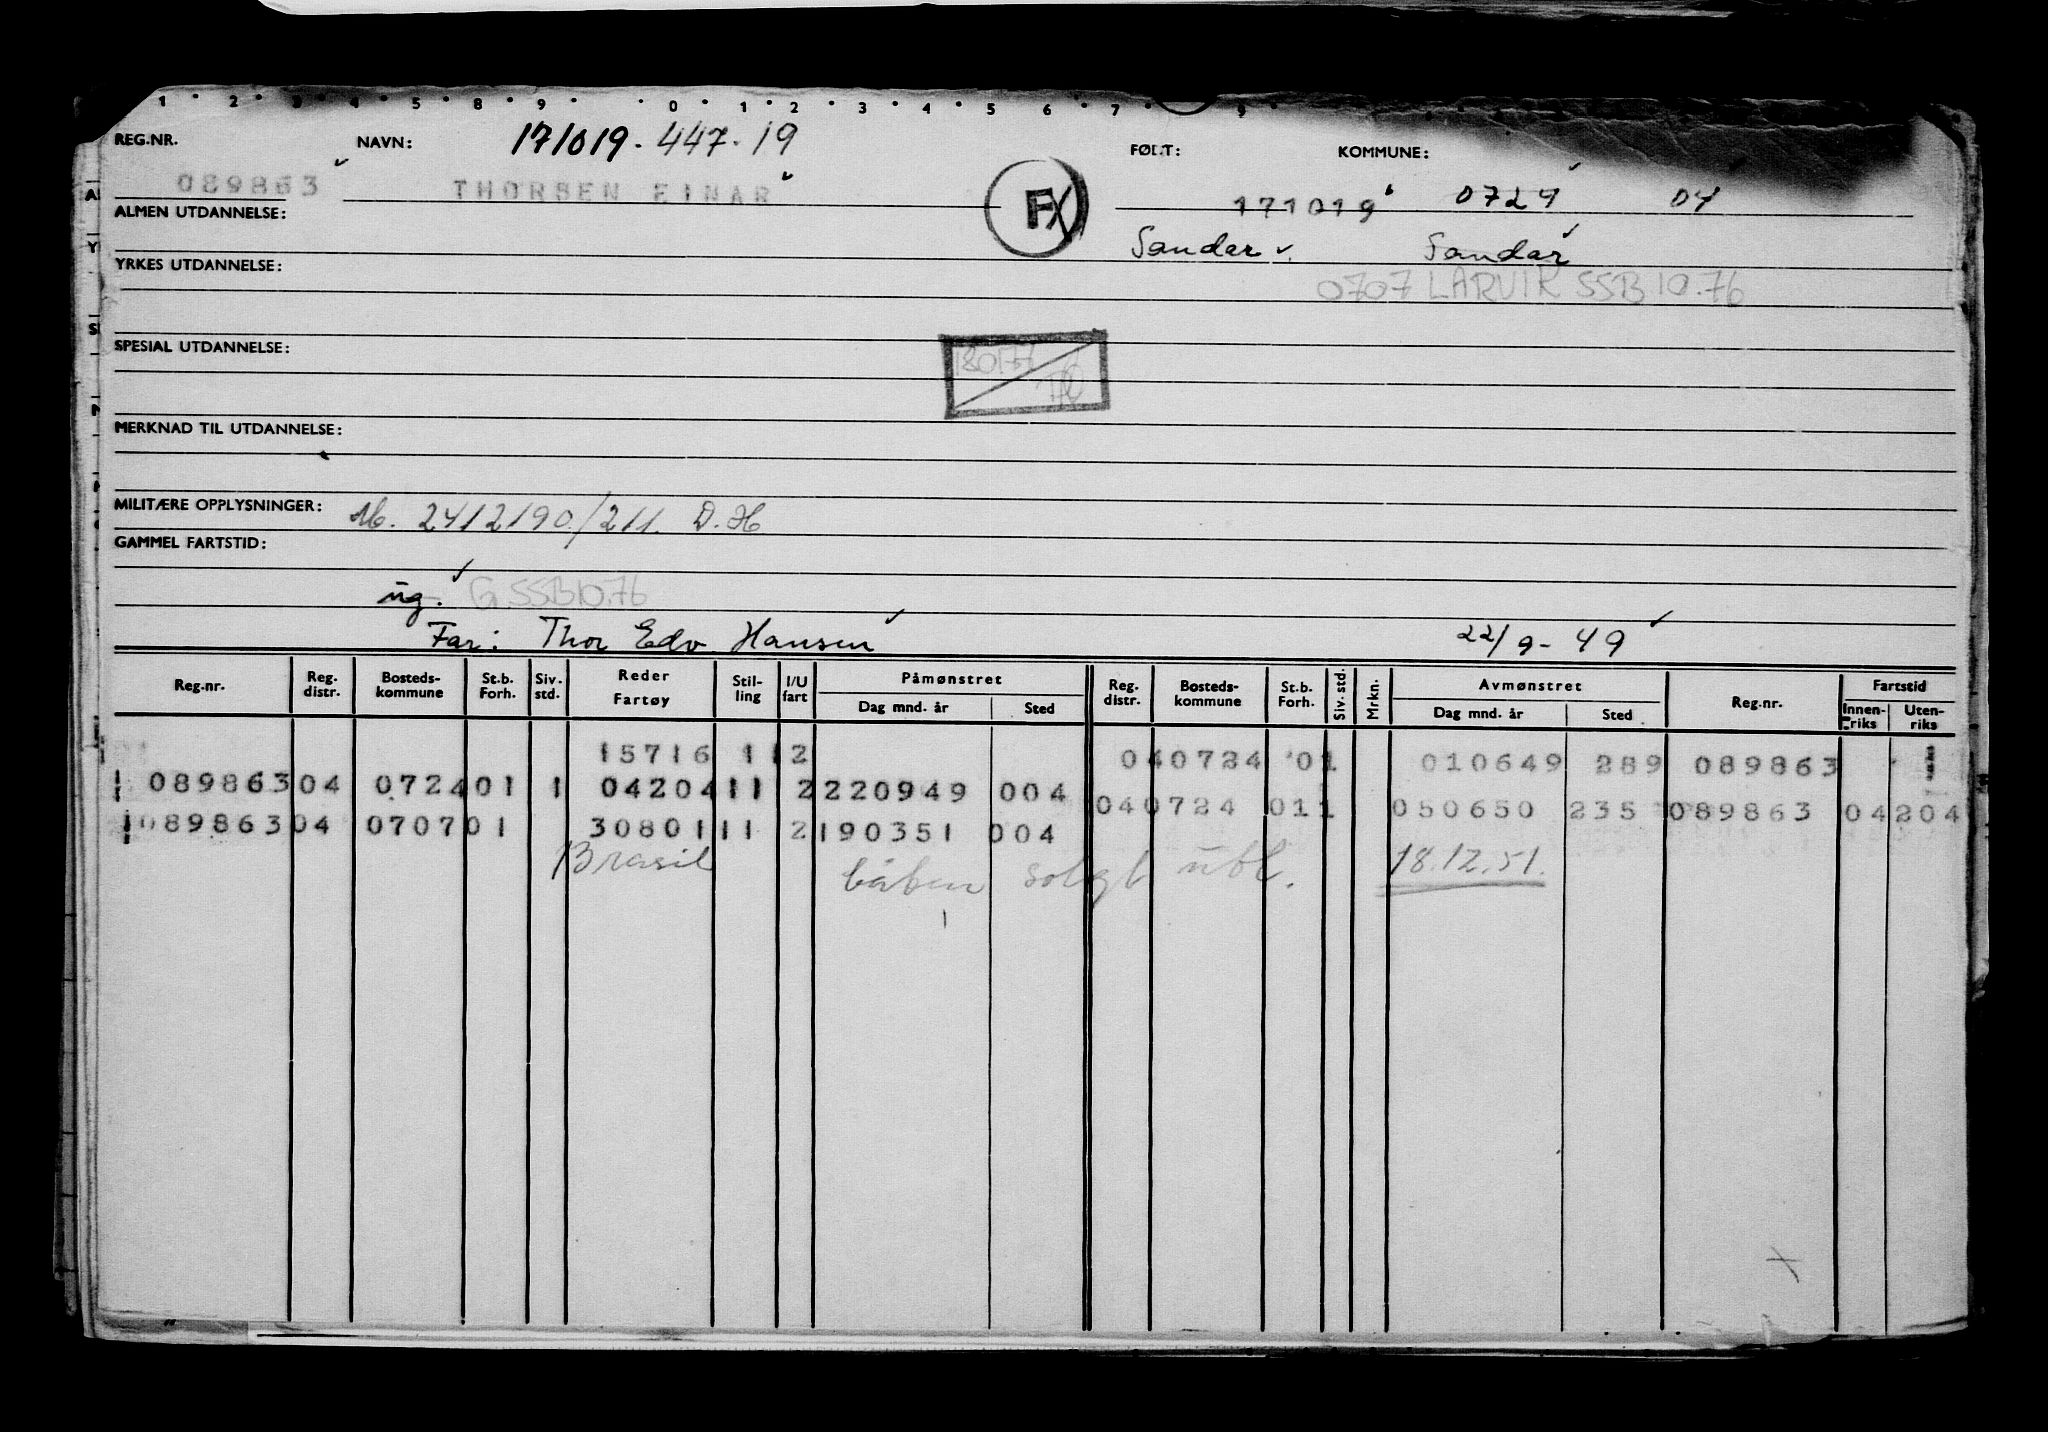 1 2 3 4 5 8 9 0 1 2 3 4 5 6 7 9
REG.NR. NAVN: 171019-447-19 FØDT: KOMMUNE:
089863 THORSEN EINAR FX 171019 0724 04
ALMEN UTDANNELSE: Sandar Sandar
YRKES UTDANNELSE: 0707 LARVIK SSB 10.76
SPESIAL UTDANNELSE: 180177
MERKNAD TIL UTDANNELSE:
MILITÆRE OPPLYSNINGER: M. 2412190/211. D.H
GAMMEL FARTSTID:
ug. G SSB 10.76
Far: Thor Edv Hansen 22/9-49
Reg.nr. Reg. distr. Bosteds-kommune St.b. Forh. Siv. std. Reder Fartøy Stil-ling I/U fart Påmønstret Dag mnd. år Sted Reg. distr. Bosteds-kommune St.b. Forh. Siv. std. Mrkn. Avmønstret Dag mnd. år Sted Reg.nr. Fartstid Innen-riks Uten-riks
15716 11 2 04 0724 01 010649 289 089863
089863 04 0724 01 1 04204 11 2 220949 004 04 0724 01 1 050650 235 089863 04 204
089863 04 0707 01 30801 11 2 190351 004
Brasil båten solgt utl. 18.12.51.